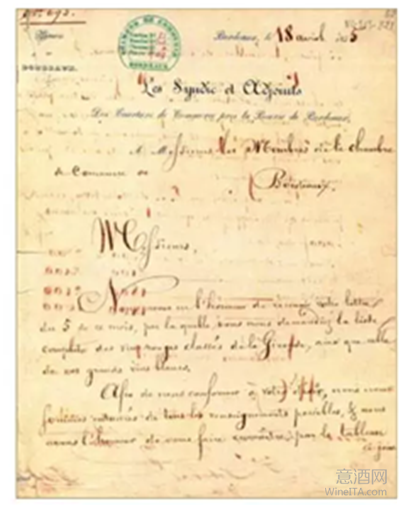 Bordeaux, le 18 avril
BORDEAUX.
CHAMBRE DE COMMERCE
BORDEAUX
Les Syndic et Adjoints
Des Courtiers de Commerce près la Bourse de Bordeaux,
A Messieurs les Membres de la Chambre
de Commerce de
Bordeaux,
Messieurs,
Nous avons eu l'honneur de recevoir votre lettre
du 5 de ce mois, par laquelle vous nous demandez la liste
complète des vins rouges classés de la Gironde, ainsi que celle
de nos grands vins blancs.
Afin de nous conformer à votre désir, nous nous
sommes entourés de tous les renseignements possibles, & nous
avons l'honneur de vous faire connaître, par le tableau
ci-joint
意酒网
WineITA.com